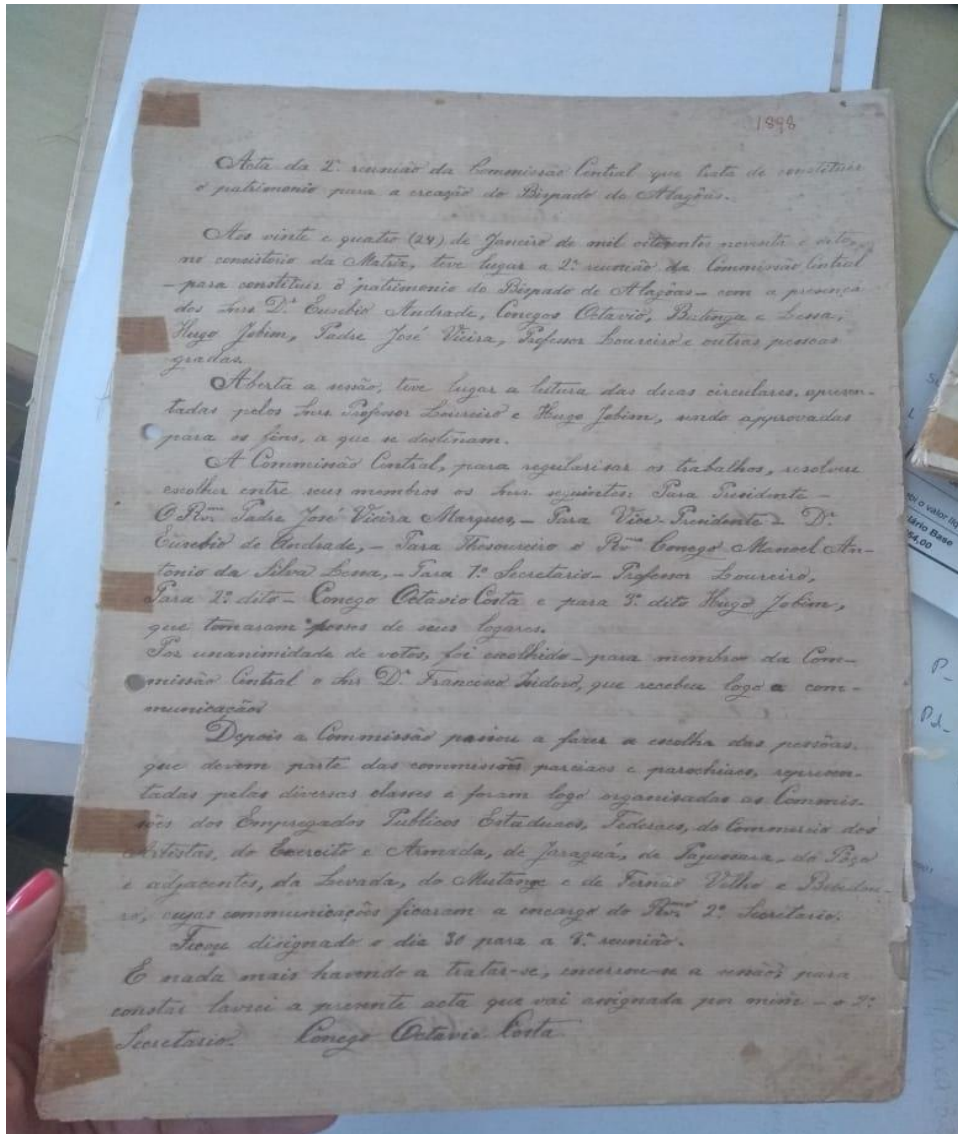 1898
Acta da 2ª reunião da Commissão Central que trata de constituir
o patrimonio para a creação do Bispado de Alagôas.
Aos vinte e quatro (24) de Janeiro de mil oitocentos noventa e oito,
no consistorio da Matriz, teve lugar a 2ª reunião da Commissão Central
—para constituir o patrimonio do Bispado de Alagôas— com a presença
dos Snrs Dr. Eusebio Andrade, Conegos Octavio, Batinga e Lessa,
Hugo Jobim, Padre José Vieira, Professor Loureiro e outras pessoas
gradas.
Aberta a sessão, teve lugar a leitura das duas circulares, apresen-
tadas pelos Snrs Professor Loureiro e Hugo Jobim, sendo approvadas
para os fins, a que se destinam.
A Commissão Central, para regularisar os trabalhos, resolveu
escolher entre seus membros os Snrs. seguintes: Para Presidente —
O Rvmo Padre José Vieira Marques, — Para Vice-Presidente o Dr.
Eusebio de Andrade, — Para Thesoureiro o Rvmo Conego Manoel An-
tonio da Silva Lessa, — Para 1º Secretario — Professor Loureiro,
Para 2º dito — Conego Octavio Costa e para 3º dito Hugo Jobim,
que tomaram posses de seus logares.
Por unanimidade de votos, foi escolhido — para membro da Com-
missão Central o Snr Dr. Francisco Isidoro, que recebeu logo a com-
municação
Depois a Commissão passou a fazer a escolha das pessôas
que devem parte das commissões parciaes e parochiaes, represen-
tadas pelas diversas classes e foram logo organisadas as Commis-
sões dos Empregados Publicos Estaduaes, Federaes, do Commercio dos
Artistas, do Exercito e Armada, de Jaraguá, de Pajussara, do Pôço
e adjacentes, da Levada, do Mutange e de Fernão Velho e Bebedou-
ro, cujas communicações ficaram a encargo do Rvmo 2º Secretario.
Ficou disignado o dia 30 para a 3ª reunião.
E nada mais havendo a tratar-se, encerrou-se a sessão, para
constar lavrei a presente acta que vai assignada por mim — o 2º
Secretario. Conego Octavio Costa